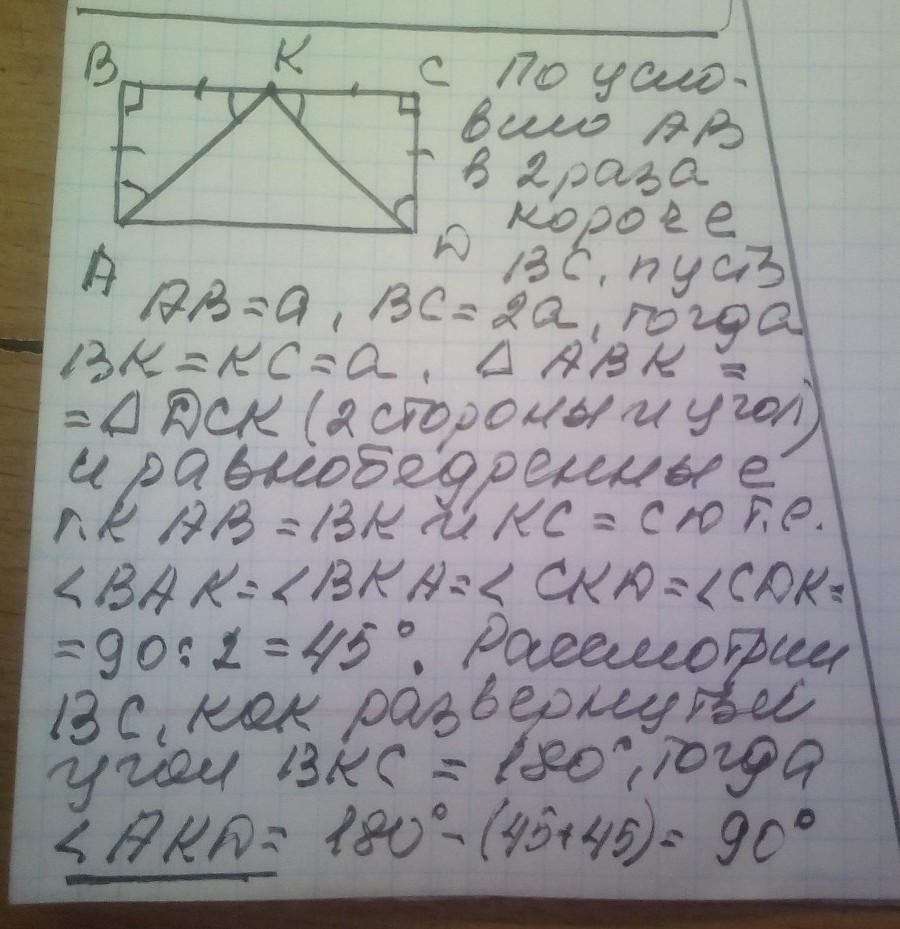 B K C По усло-
вию AB
в 2 раза
короче
A D BC, пусть
AB = a, BC = 2a, тогда
BK = KC = a. △ ABK =
= △ DCK (2 стороны и угол)
и равнобедренные
т.к AB = BK и KC = CD т.е.
∠BAK = ∠BKA = ∠CKD = ∠CDK =
= 90 : 2 = 45°. Рассмотрим
BC, как развернутый
угол BKC = 180°, тогда
∠AKD = 180° - (45+45) = 90°